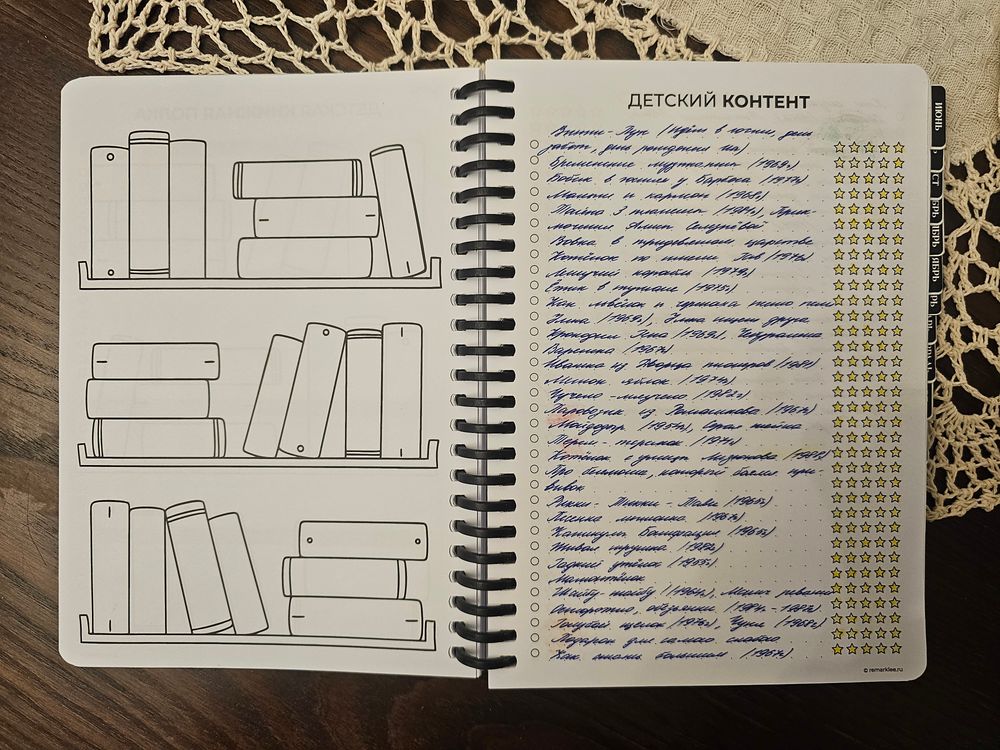 ДЕТСКИЙ КОНТЕНТ
Винни-Пух (Идём в гости, день
забот, день рождения Иа)
Бременские музыканты (1969г)
Бобик в гостях у Барбоса (1977г)
Малыш и Карлсон (1968г)
Тайна 3 планеты (1981г), Прик-
лючения Алисы Селезнёвой
Вовка в тридевятом царстве
Котёнок по имени Гав (1976г)
Летучий корабль (1979г)
Ёжик в тумане (1975г)
Как львёнок и черепаха пели
Умка (1969г), Умка ищет друга
Крокодил Гена (1969г), Чебурашка
Варежка (1967г)
Ивашка из Дворца пионеров (1981г)
Мешок яблок (1974г)
Чучело-мяучело (1982г)
Паровозик из Ромашкова (1967г)
Мойдодыр (1954г), Серая шейка
Терем-теремок (1971г)
Котёнок с улицы Лизюкова (1988г)
Про бегемота, который боялся при-
вивок
Рикки-Тикки-Тави (1965г)
Песенка мышонка (1967г)
Каникулы Бонифация (1965г)
Живая игрушка (1982г)
Гадкий утёнок (1956г)
Мамонтёнок
Шайбу-шайбу (1964г), Матч-реванш
Осторожно, обезьянки (1984-1997г)
Голубой щенок (1976г), (1968г)
Подарок для самого слабого
Как стать большим (1967г).
ИЮНЬ
© remarklee.ru